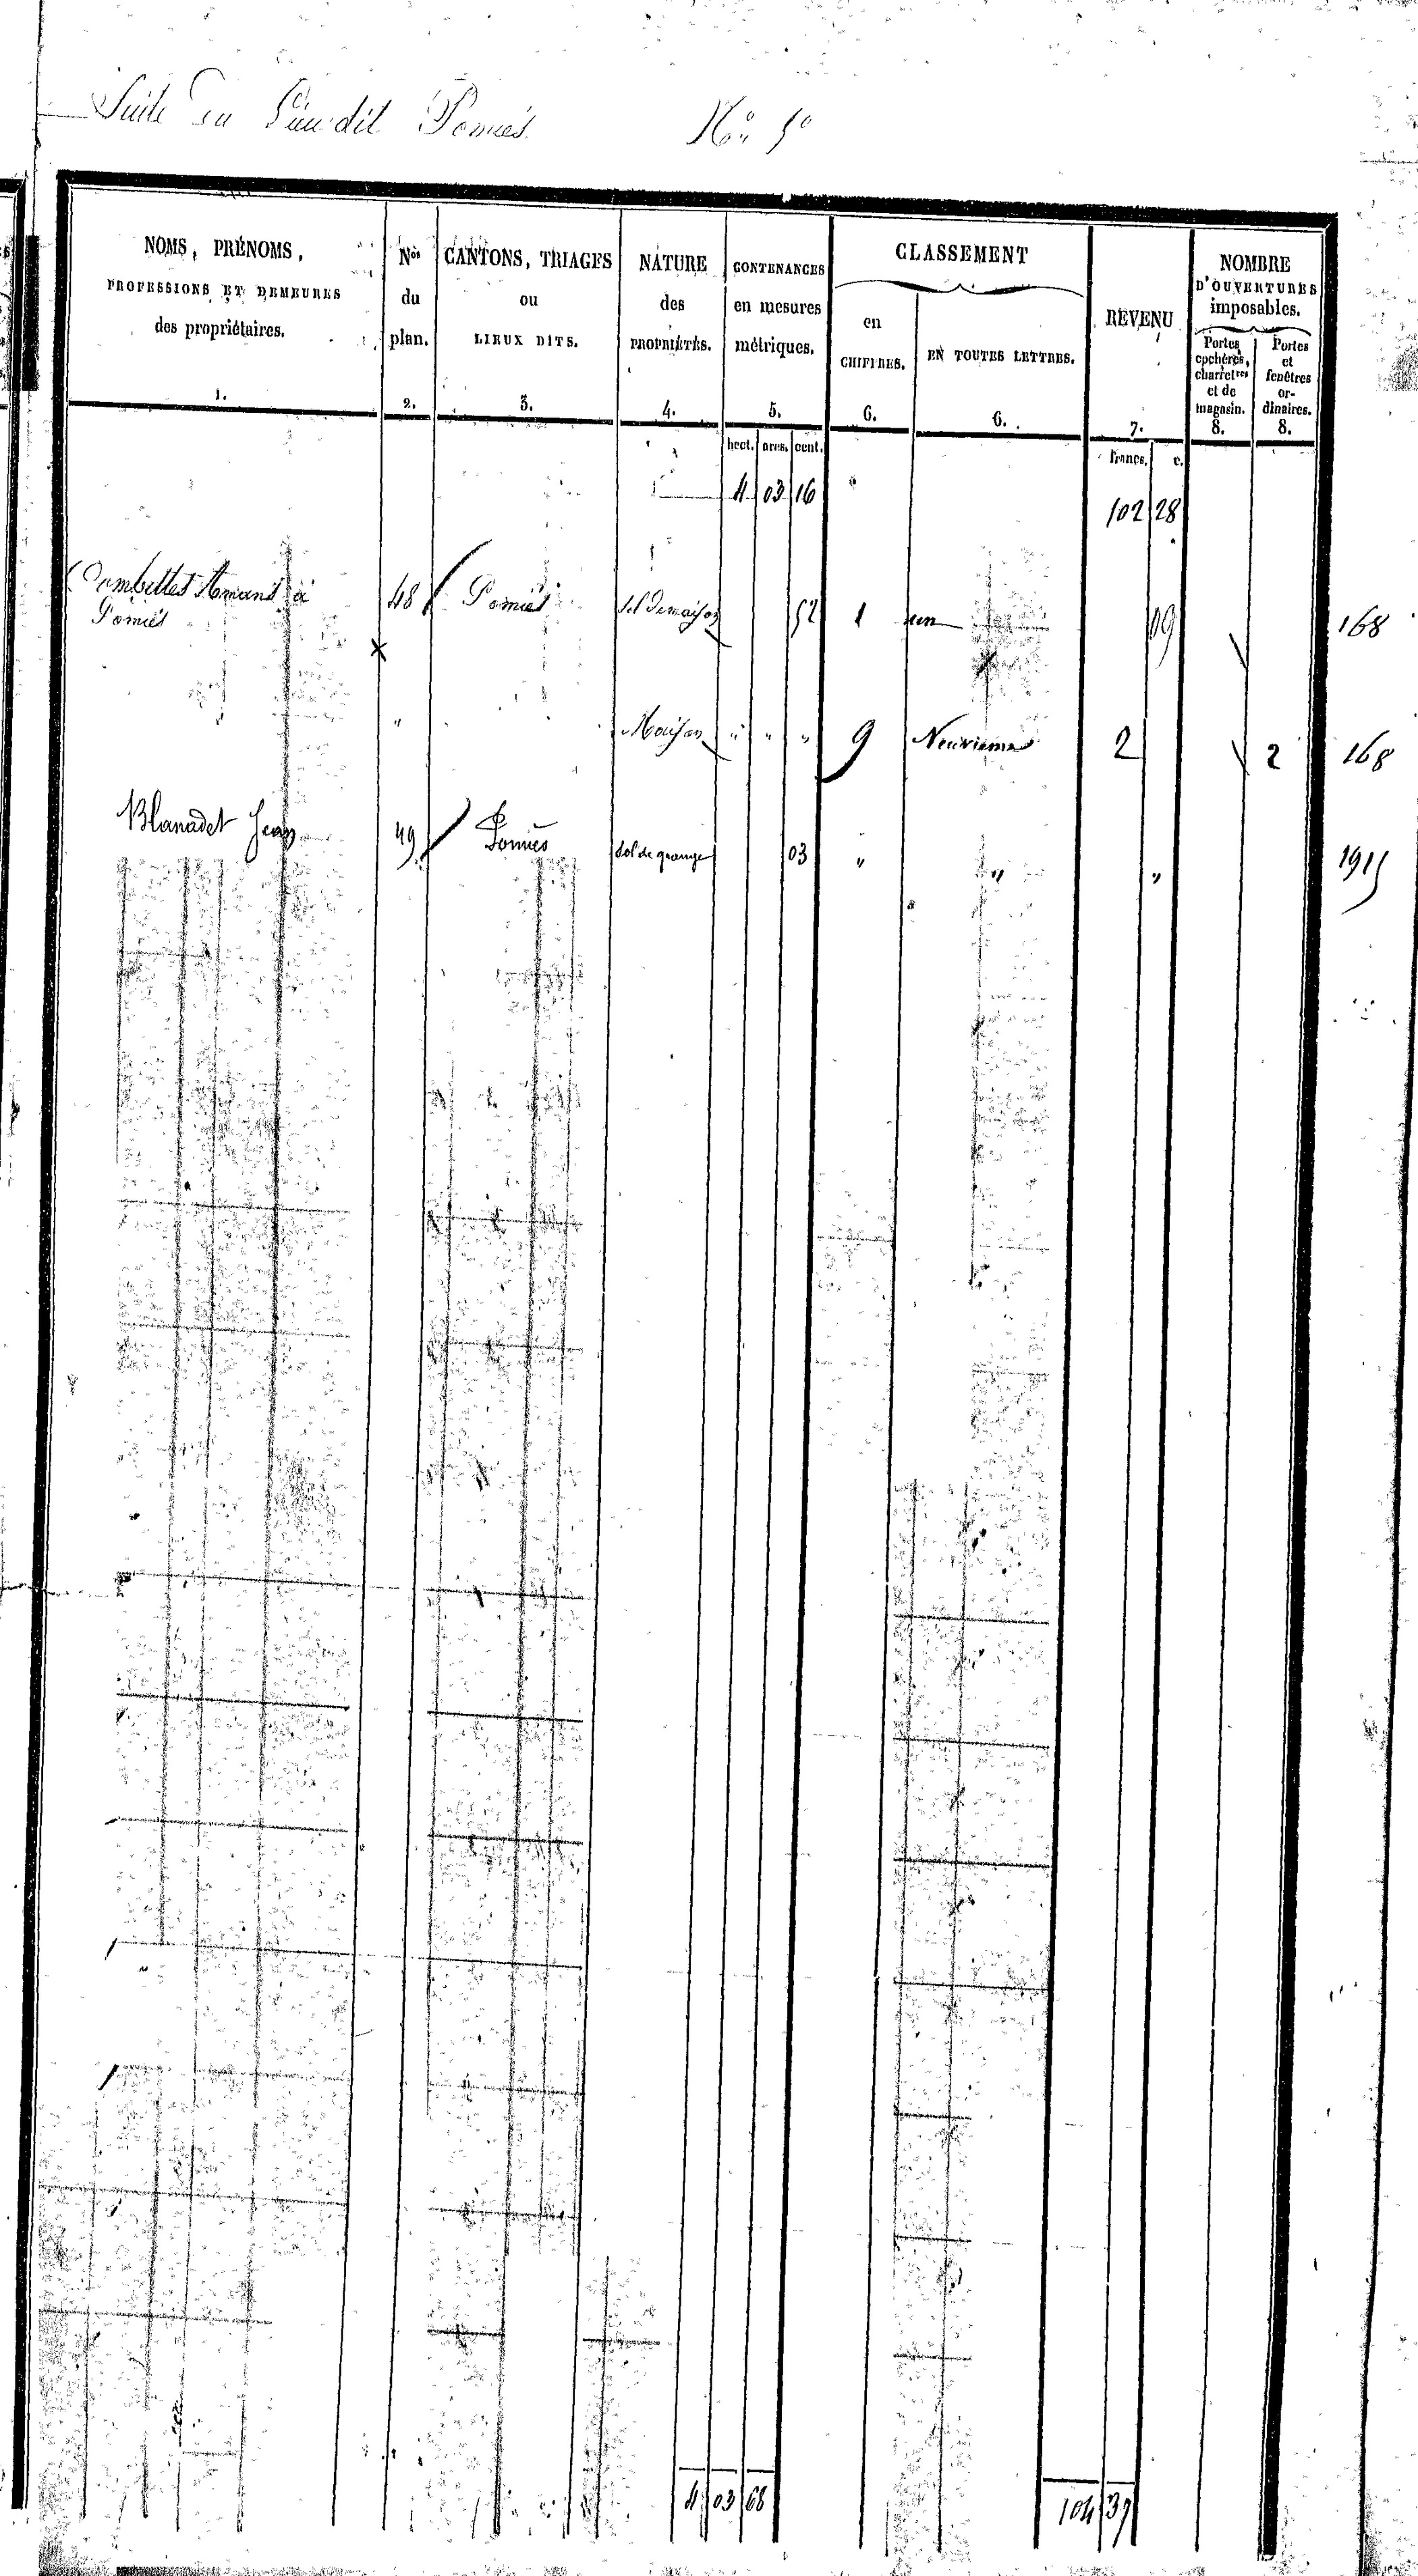 Suite du Lieu dit Pomiés No. 5°
NOMS, PRÉNOMS,
PROFESSIONS ET DEMEURES
des propriétaires.
1.
Nos
du
plan.
2.
CANTONS, TRIAGES
ou
LIEUX DITS.
3.
NATURE
des
PROPRIÉTÉS.
4.
CONTENANCES
en mesures
métriques.
5.
hect. ares. cent.
CLASSEMENT
en
CHIFFRES.
6.
EN TOUTES LETTRES.
6.
REVENU
7.
francs. c.
NOMBRE
D'OUVERTURES
imposables.
Portes
cochères,
charretres
et de
magasin.
8.
Portes
et
fenêtres
or-
dinaires.
8.
4 03 16 102 28
Amans à
Pomiés
48 Pomiés Sol de maison 52 1 un 09 168
" Maison " " " 9 Neuvieme 2 2 168
Blanadet Jean 49 Pomiès Sol de grange 03 " " " 1915
4 03 68 104 37